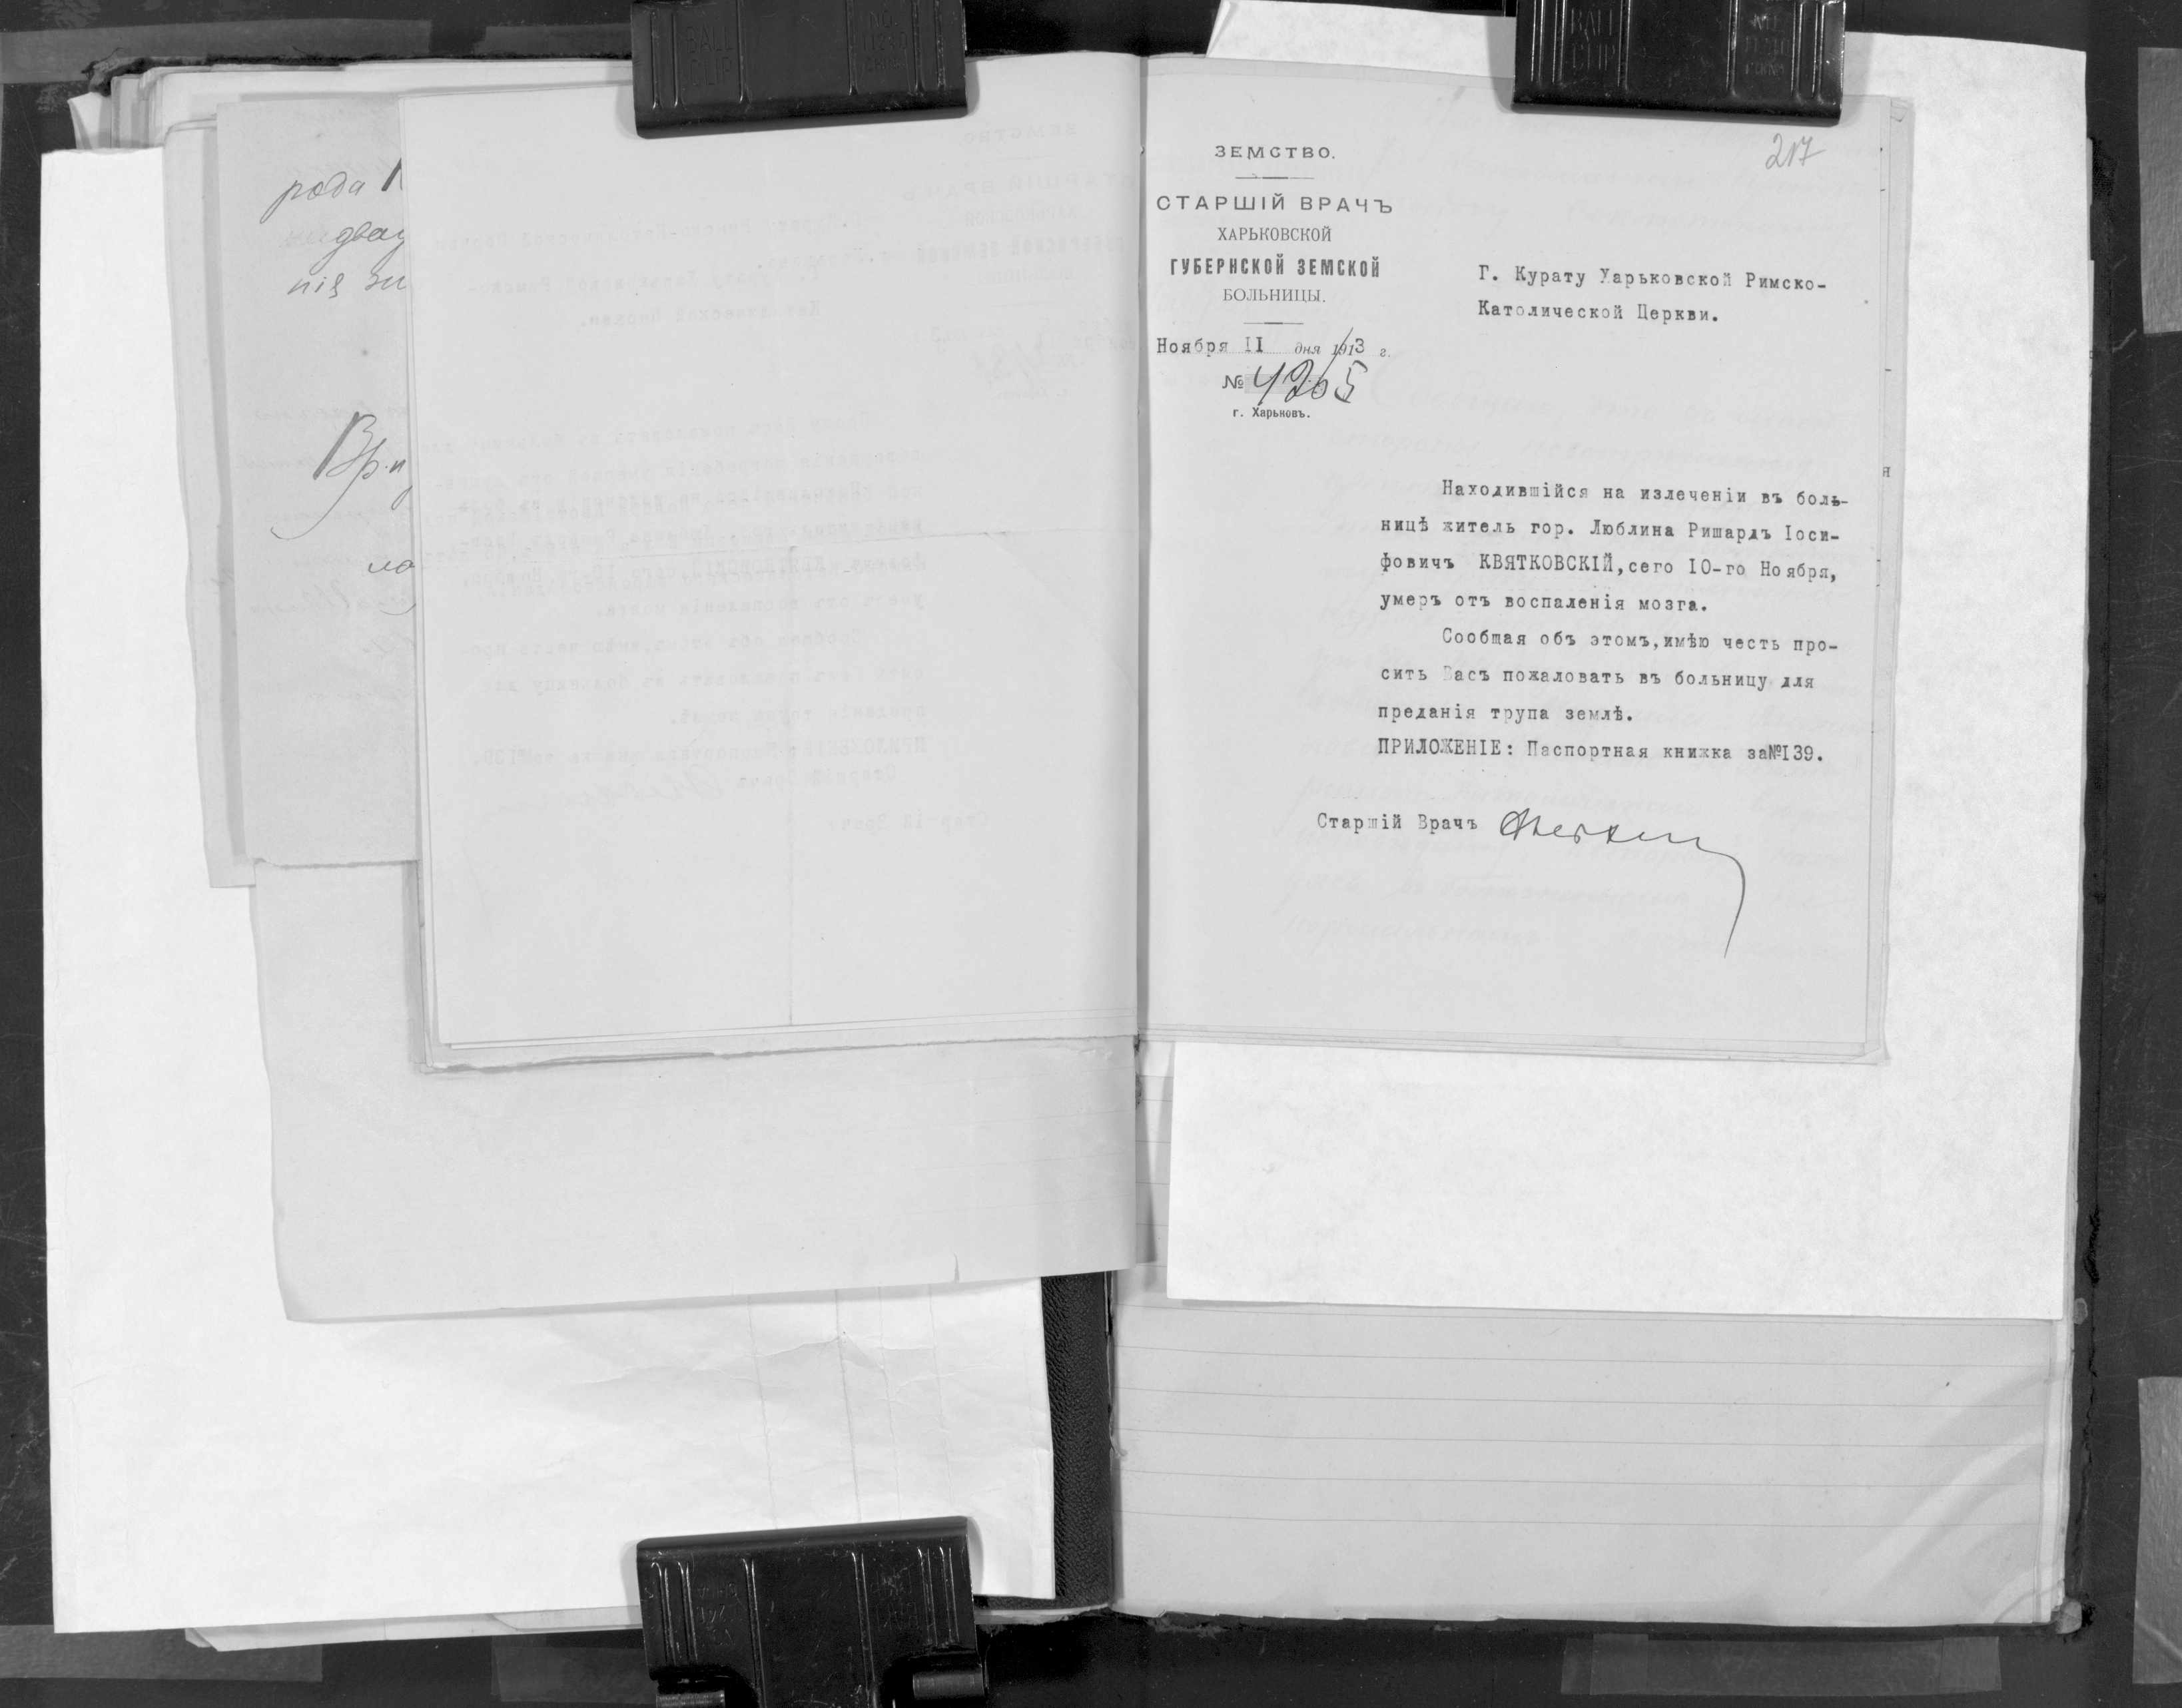 рода
нія
217
ЗЕМСТВО.
СТАРШІЙ ВРАЧЪ
ХАРЬКОВСКОЙ
ГУБЕРНСКОЙ ЗЕМСКОЙ
БОЛЬНИЦЫ.
Ноября II дня 1913 г.
№ 4205
г. Харьковъ.
Г. Курату Харьковской Римско-
Католической Церкви.
Находившійся на излеченіи въ боль-
ницѣ житель гор. Люблина Ришардъ Іоси-
фовичъ КВЯТКОВСКІЙ,сего IO-го Ноября,
умеръ отъ воспаленія мозга.
Сообщая объ этомъ,имѣю честь про-
сить Васъ пожаловать въ больницу для
преданія трупа землѣ.
ПРИЛОЖЕНІЕ: Паспортная книжка за№I39.
Старшій Врачъ